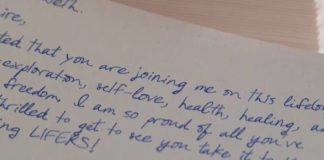 ire,
ted that you are joining me on this lifelo
exploration, self-love, health, healing, a
freedom. I am so proud of all you've
hrilled to get to see you take it to
ing LIFERS!